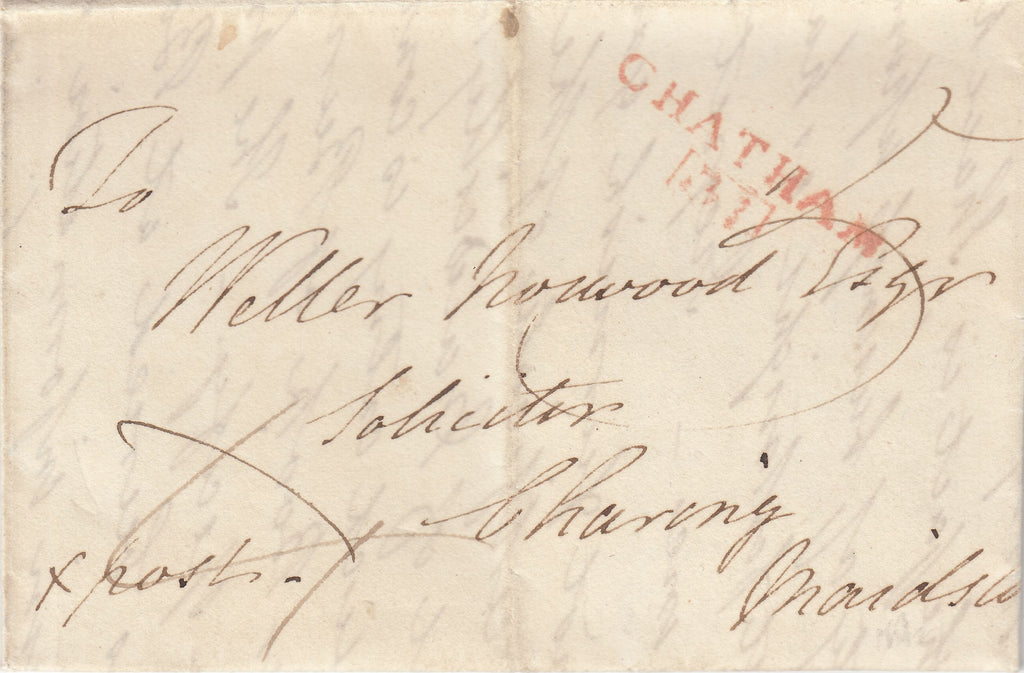 CHATHAM
To
Weller Norwood Esqr
Soliciter
Charing
x post.
Maids